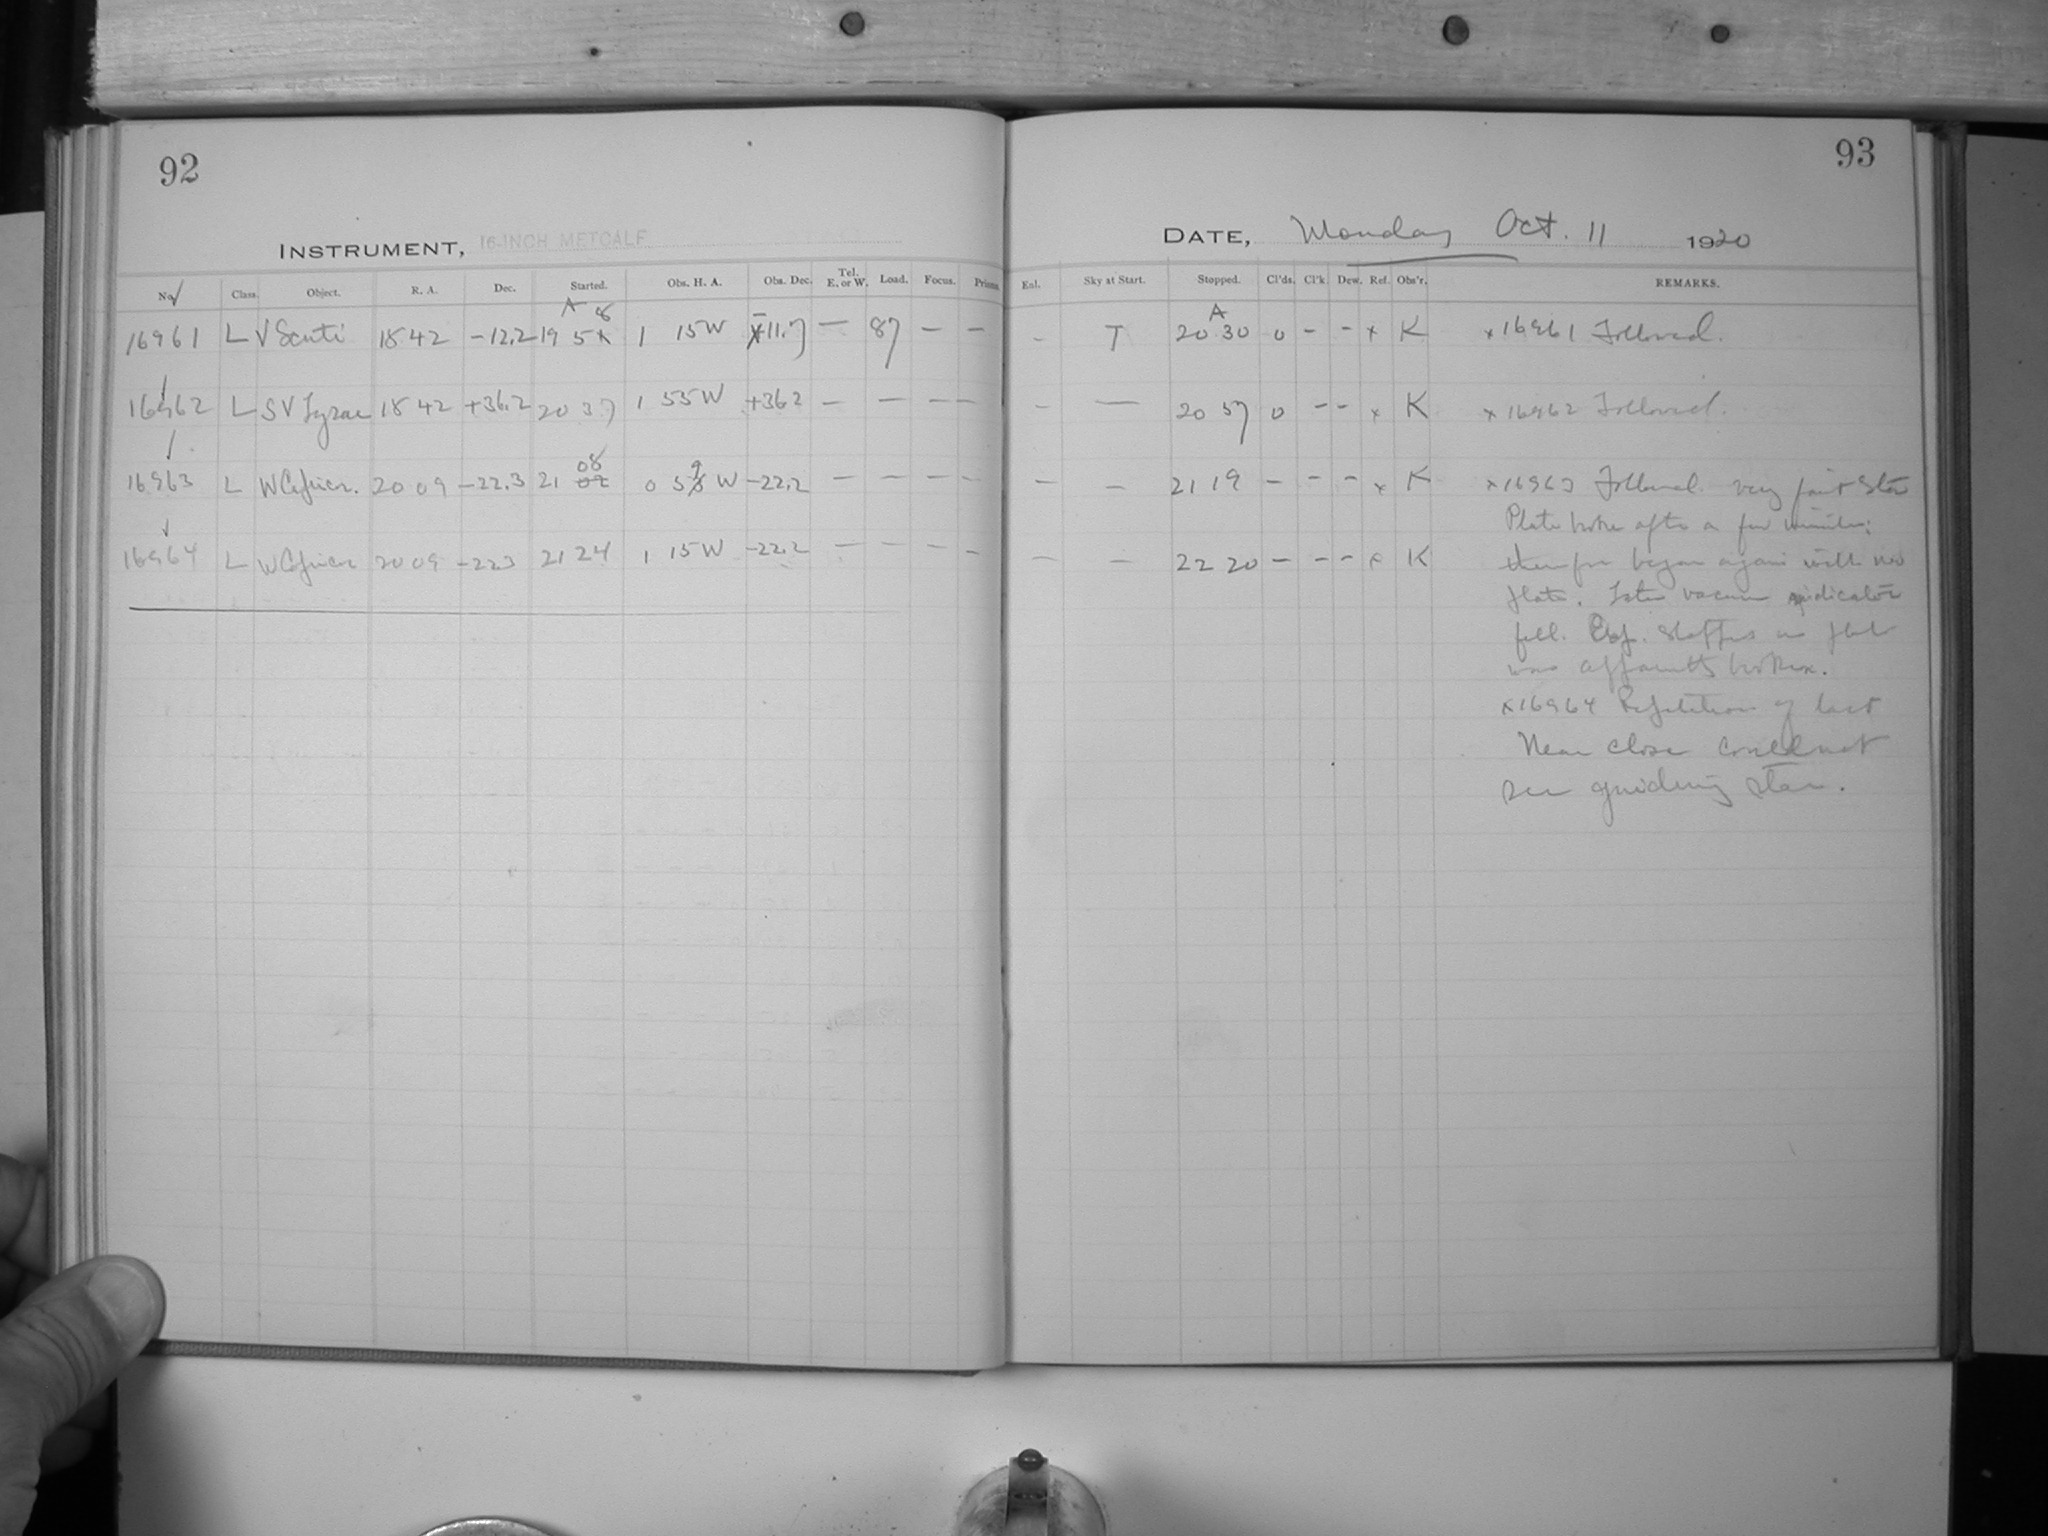 92
INSTRUMENT, 16-INCH METCALF
No. Class. Object. R. A. Dec. Started. Obs. H. A. Obs. Dec. Tel. E. or W. Load. Focus. Prisms
16961 L V Scuti 18 42 -12.2 19 58 1 15 W -11.7 — 87 — —
16962 L SV Lyrae 18 42 +36.2 20 37 1 55 W +36.2 — — — —
16963 L W Capricr. 20 09 -22.3 21 08 0 59 W -22.2 — — — —
16964 L W Capricr 20 09 -22.3 21 24 1 15 W -22.2 — — — —
93
DATE, Monday Oct. 11 1920
Enl. Sky at Start. Stopped. Cl'ds. Cl'k. Dew. Ref. Obs'r. REMARKS.
A
- T 20 30 0 - - x K x16961 Followed.
- — 20 57 0 - - x K x16962 Followed.
- — 21 19 - - - x K x16963 Followed. Very faint star
Plate broke after a few minutes;
— — 22 20 - - - x K therefore began again with new
plate. Later vacuum indicator
fell. Exp. stopped as plate
was apparently broken.
x16964 Repetition of last
Near close could not
see guiding star.